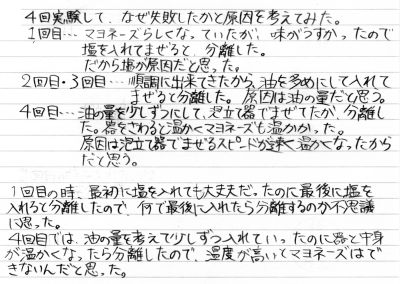 4回実験して、なぜ失敗したかと原因を考えてみた。
1回目… マヨネーズらしくなっていたが、味がうすかったので
塩を入れてまぜると、分離した。
だから塩が原因だと思った。
2回目・3回目… 順調に出来てきたから、油を多めにして入れて
まぜると分離した。原因は油の量だと思う。
4回目… 油の量を少しずつにして、泡立て器でまぜてたが、分離し
た。器をさわると温かくマヨネーズも温かかった。
原因は泡立て器でまぜるスピードが速く温かくなったから
だと思う。
1回目の時、最初に塩を入れても大丈夫だったのに最後に塩を
入れると分離したので、何で最後に入れたら分離するのか不思議
に思った。
4回目では、油の量を考えて少しずつ入れていったのに器と中身
が温かくなったら分離したので、温度が高いとマヨネーズはで
きないんだと思った。